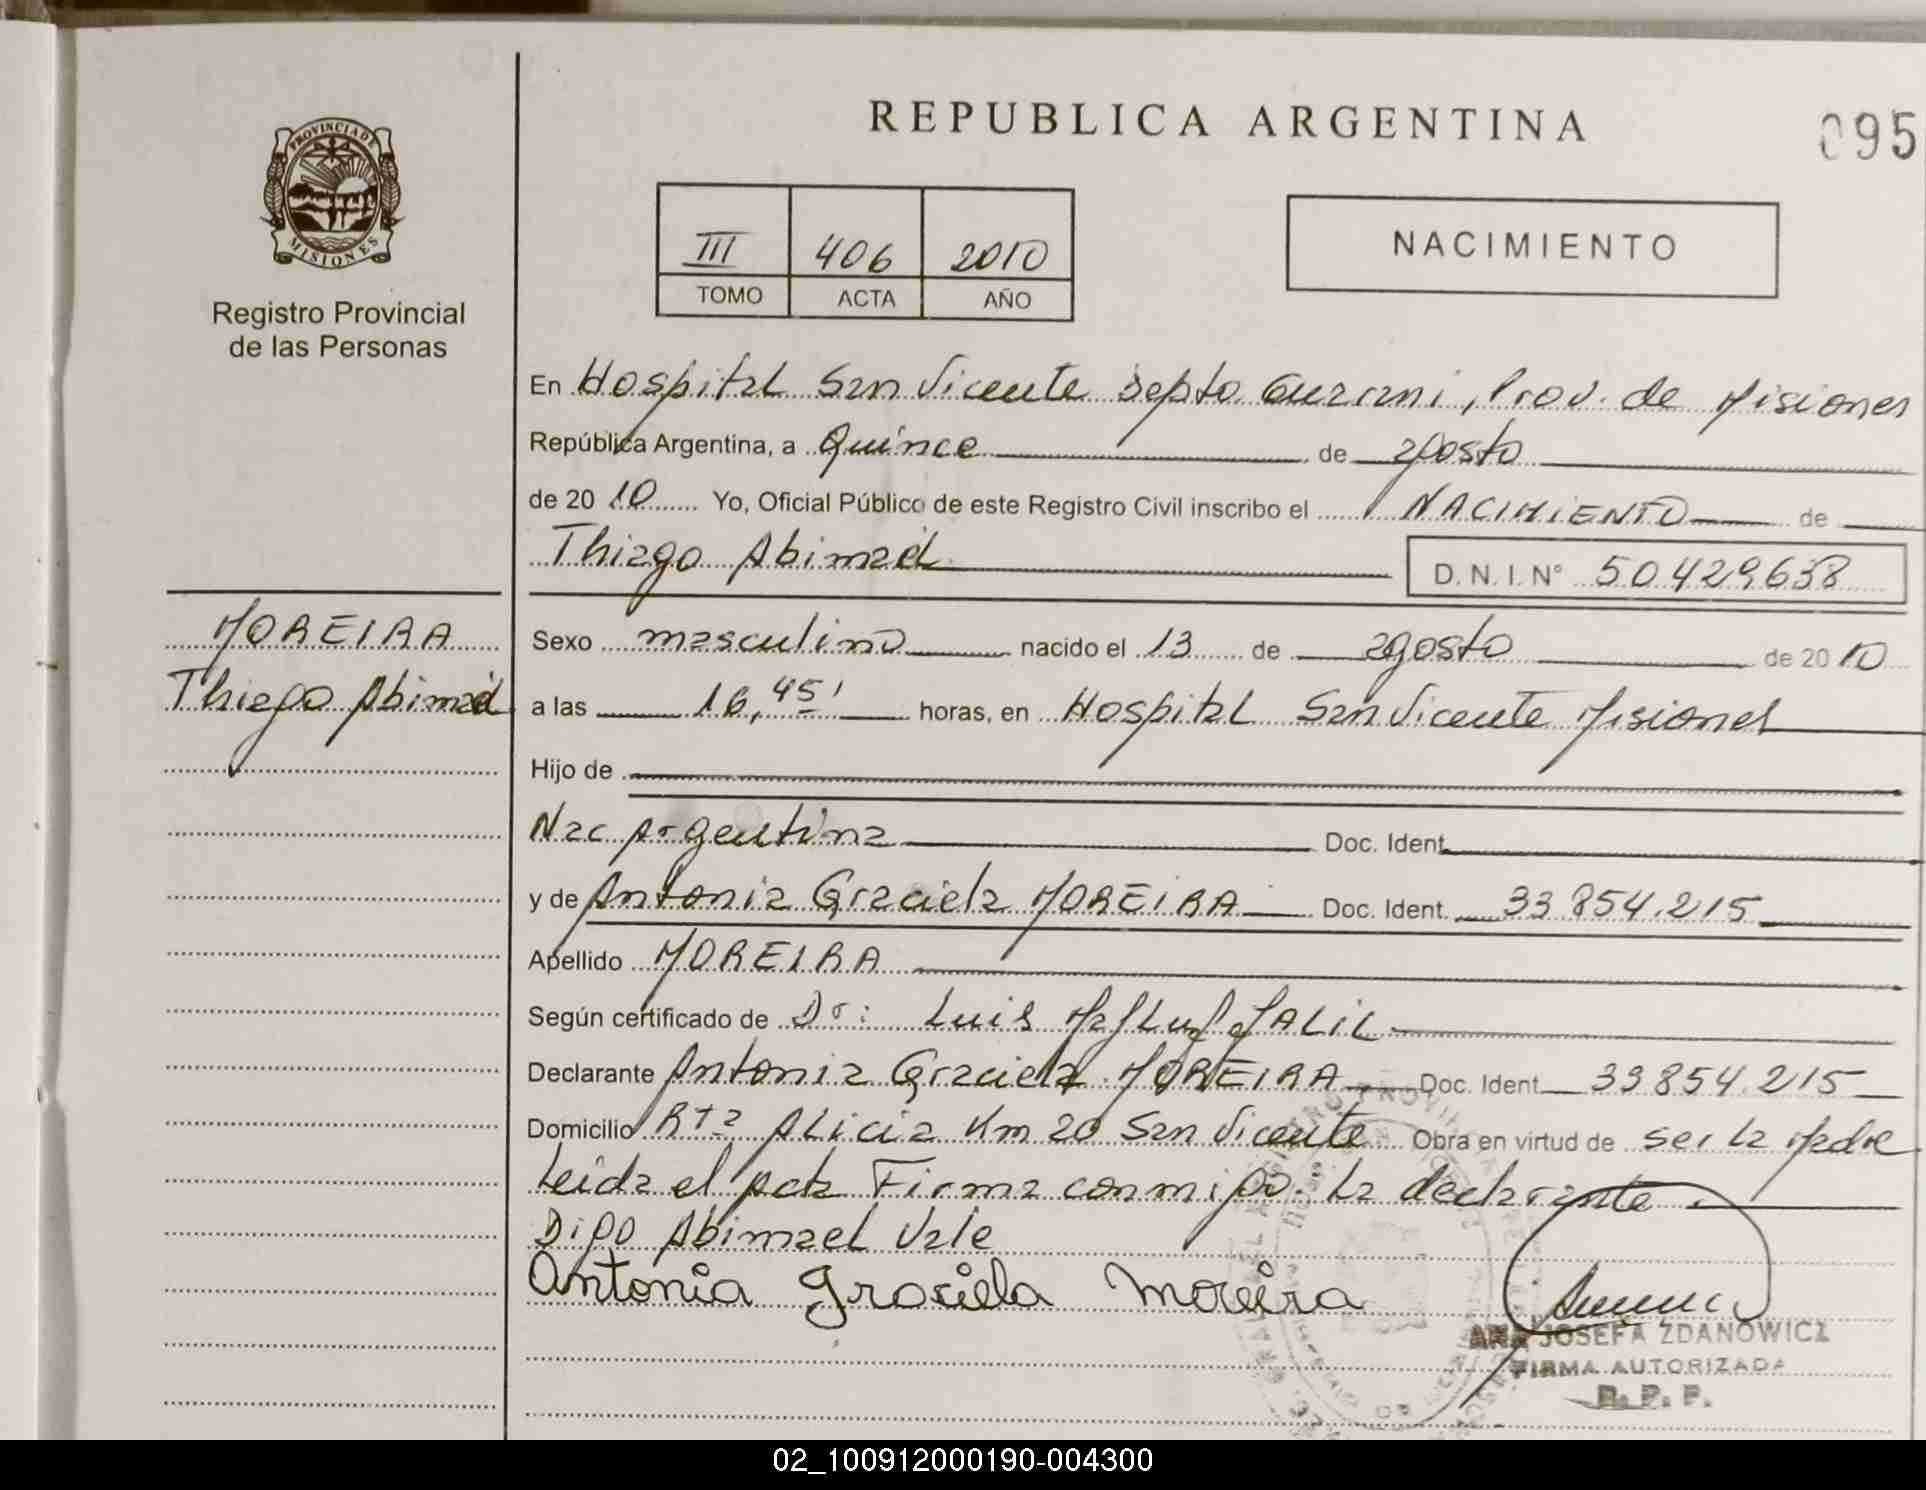 REPUBLICA ARGENTINA
095
PROVINCIA DE
MISIONES
Registro Provincial
de las Personas
III 406 2010
TOMO ACTA AÑO
NACIMIENTO
En Hospital San Vicente Depto Guarani, Prov. de Misiones
República Argentina, a Quince de agosto
de 2010 Yo, Oficial Público de este Registro Civil inscribo el NACIMIENTO de
Thiago Abimael D. N. I. Nº 50429638
MOREIRA
Thiago Abimael
Sexo masculino nacido el 13 de agosto de 2010
a las 16,45' horas, en Hospital San Vicente Misiones
Hijo de
Nac Argentina Doc. Ident.
y de Antonia Graciela MOREIRA Doc. Ident. 33.854.215
Apellido MOREIRA
Según certificado de Dr: Luis JALIL
Declarante Antonia Graciela MOREIRA Doc. Ident. 33854.215
Domicilio Rta Alicia Km 20 San Vicente Obra en virtud de ser la Madre
Leida el Acta Firma conmigo. La declarante.
Digo Abimael Vale
Antonia Graciela Moreira
ANA JOSEFA ZDANOWICZ
FIRMA AUTORIZADA
R. P. P.
02_100912000190-004300